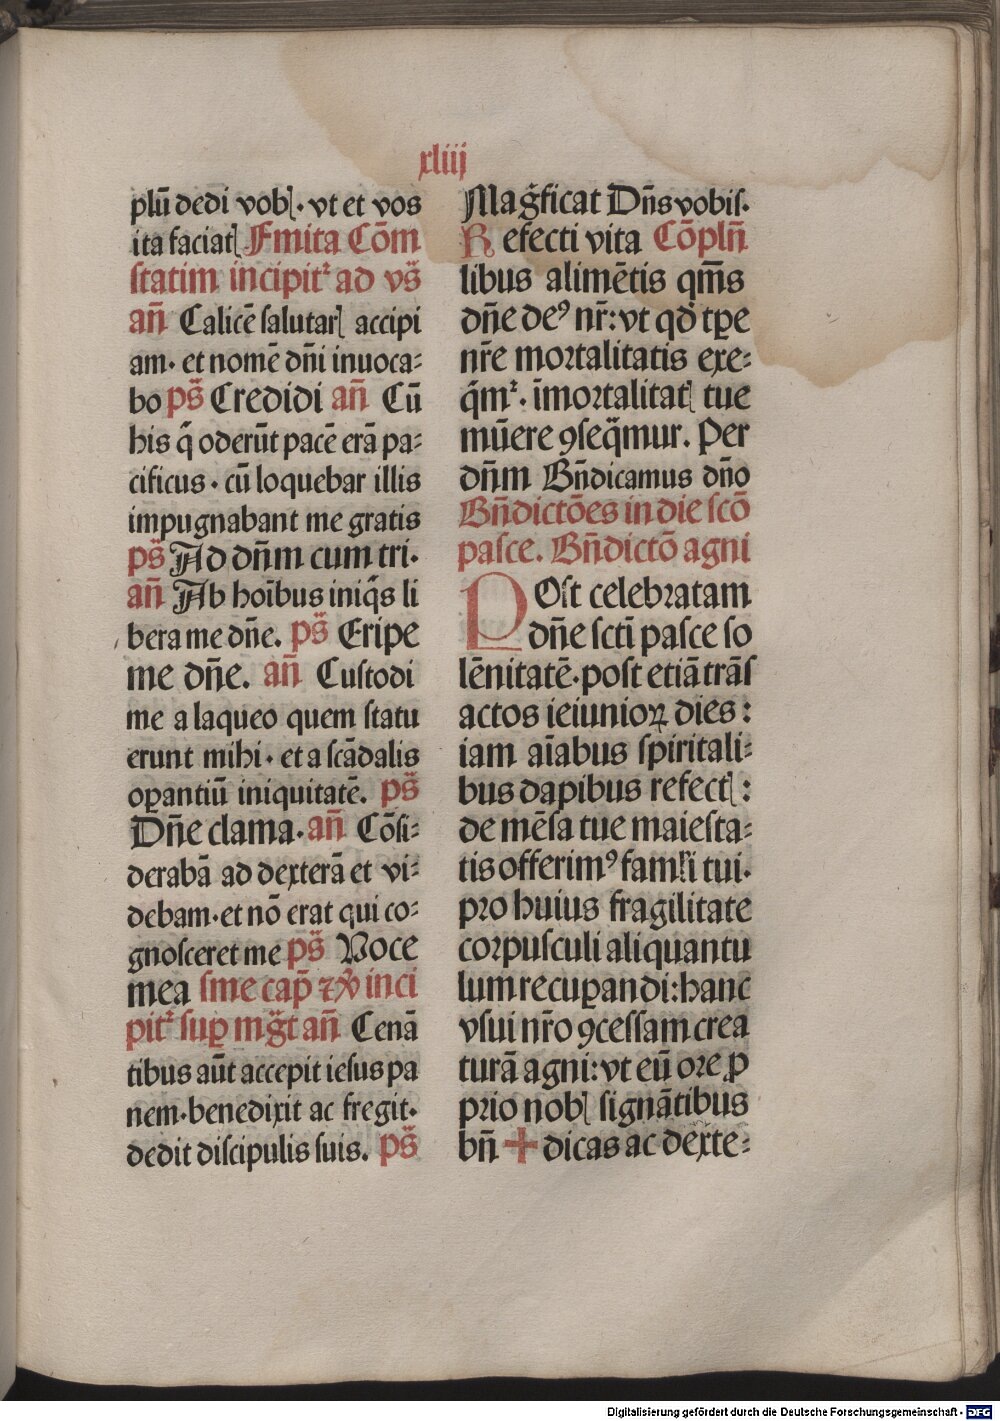 xliij
plū dedi vobꝭ· vt et vos
ita faciatꝭ Fmita Cōm
ſtatim incipit᷑ ad vs̄
an̄ Calicē ſalutarꝭ accipi
am· et nomē dn̄i inuoca⸗
bo ps̄ Credidi an̄ Cū
his q̄ oderūt pacē erā pa⸗
cificus · cū loquebar illis
impugnabant me gratis
ps̄ Ad dn̄m cum tri·
an̄ Ab hoībus iniq̄s li
bera me dn̄e. ps̄ Eripe
me dn̄e. an̄ Cuſtodi
me a laqueo quem ſtatu
erunt mihi · et a ſcādalis
oꝑantiū iniquitatē. ps̄
Dn̄e clama· an̄ Cōſi⸗
derabā ad dexterā et vi⸗
debam·et nō erat qui co⸗
gnoſceret me ps̄ Voce
mea ſme cap̄ ⁊ꝟ inci
pit᷑ ſuꝑ mg̃t an̄ Cenā
tibus aūt accepit ieſus pa
nem·benedixit ac fregit·
dedit diſcipulis ſuis. ps̄
Mag̃ficat Dn̄s vobiſ·
R efecti vita Cōpln̄
libus alimētis qm̄s
dn̄e deꝰ nr̄: vt qd̄ tꝑe
nr̄e moꝛtalitatis exe⸗
q̄m᷑· īmoꝛtalitatꝭ tue
mūere ꝯſeq̄mur. Per
dn̄m Bn̄dicamus dn̄o
Bn̄dictōes in die ſcō
paſce. Bn̄dictō agni
POſt celebꝛatam
dn̄e ſctī paſce ſo
lēnitatē·poſt etiā trāſ
actos ieiunioꝝ dies :
iam aīabus ſpiritali⸗
bus dapibus refectꝭ :
de mēſa tue maieſta⸗
tis offerimꝰ famłi tui·
pꝛo huius fragilitate
coꝛpuſculi aliquantu
lum recuꝑandi: hanc
vſui nr̄o ꝯceſſam crea
turā agni: vt eū oꝛe ꝓ
pꝛio nobꝭ ſignātibus
bn̄ ✚ dicas ac dexte⸗
Digitalisierung gefördert durch die Deutsche Forschungsgemeinschaft - DFG